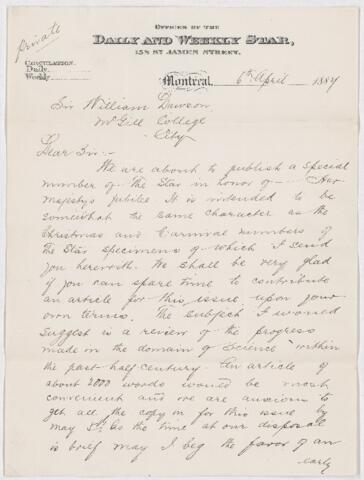 Private
OFFICES OF THE
DAILY AND WEEKLY STAR,
158 ST JAMES STREET.
CIRCULATION.
Daily.
Weekly
Montreal, 6th April 1887
Sir William Dawson
McGill College
City
Dear Sir:-
We are about to publish a special
number of the Star in honor of Her
Majestys Jubilee. It is intended to be
somewhat the same character as the
Christmas and Carnival numbers of
the Star specimens of which I send
you herewith. We shall be very glad
if you can spare time to contribute
an article for this issue upon your
own terms. The subject I would
suggest is a review of the progress
made in the domain of Science within
the past half century. An article of
about 2000 words would be most
convenient and we are anxious to
get all the copy in for this issue by
May 5th. As the time at our disposal
is brief may I beg the favor of an
early